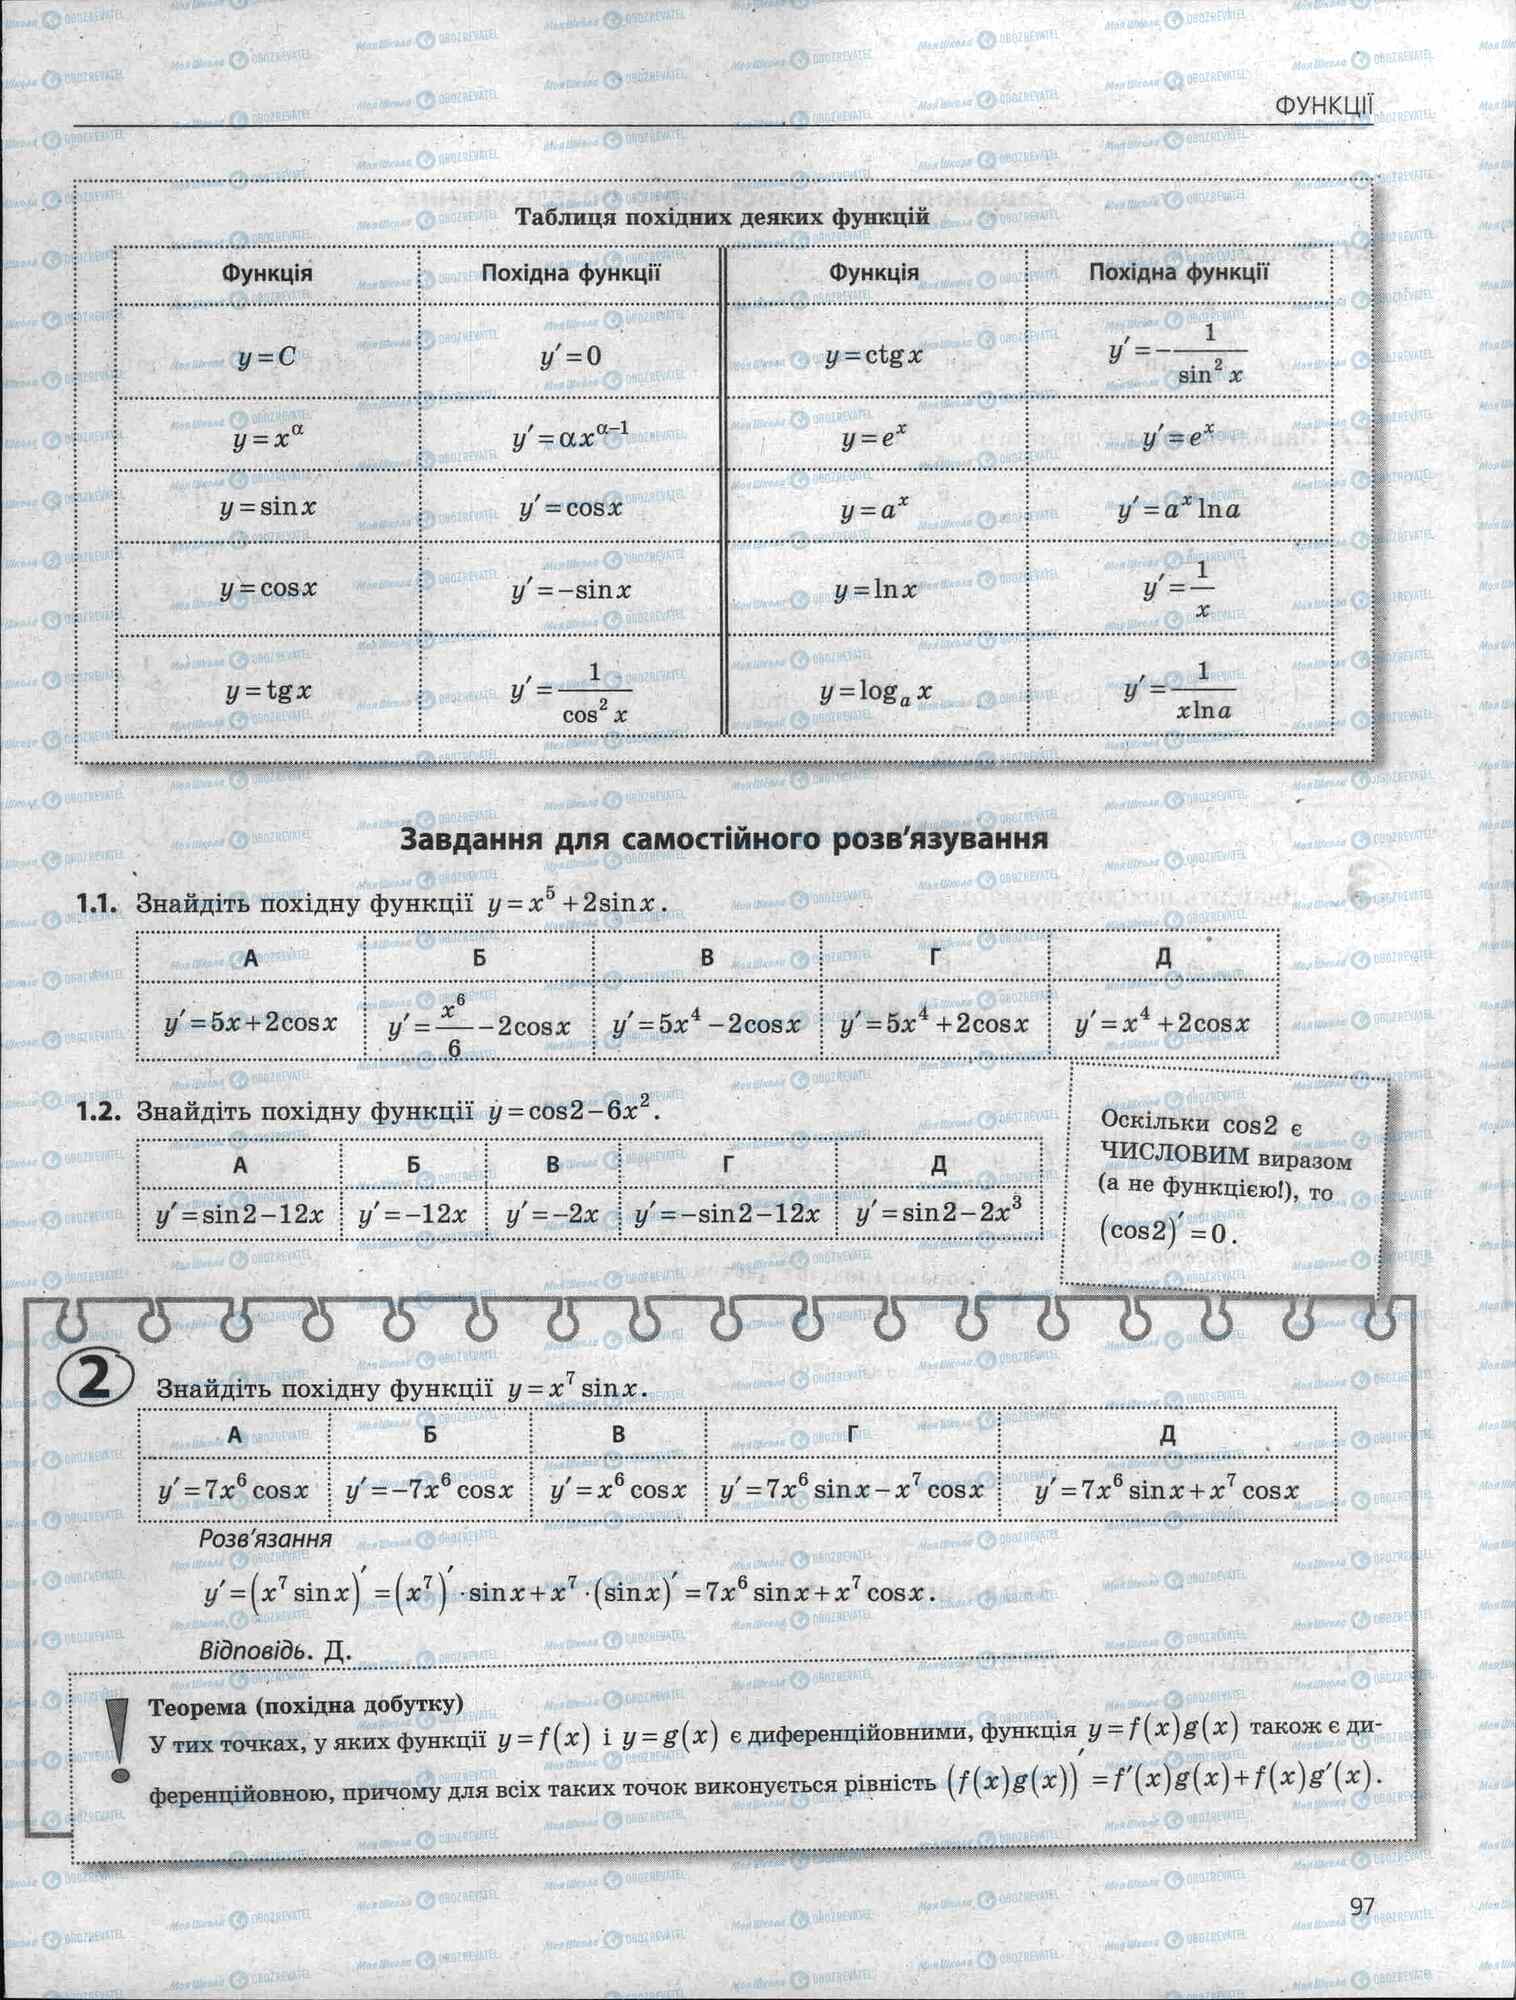 ФУНКЦІЇ
Таблиця похідних деяких функцій
Функція | Похідна функції | Функція | Похідна функції
y=C | y′=0 | y=ctgx | y′=−1/sin² x
y=x^α | y′=αx^(α−1) | y=e^x | y′=e^x
y=sinx | y′=cosx | y=a^x | y′=a^x lna
y=cosx | y′=−sinx | y=lnx | y′=1/x
y=tgx | y′=1/cos² x | y=log_a x | y′=1/(xlna)
Завдання для самостійного розв’язування
1.1. Знайдіть похідну функції y=x⁵+2sinx.
А | Б | В | Г | Д
y′=5x+2cosx | y′=x⁶/6−2cosx | y′=5x⁴−2cosx | y′=5x⁴+2cosx | y′=x⁴+2cosx
1.2. Знайдіть похідну функції y=cos2−6x².
А | Б | В | Г | Д
y′=sin2−12x | y′=−12x | y′=−2x | y′=−sin2−12x | y′=sin2−2x³
Оскільки cos2 є
ЧИСЛОВИМ виразом
(а не функцією!), то
(cos2)′=0.
2 Знайдіть похідну функції y=x⁷ sinx.
А | Б | В | Г | Д
y′=7x⁶ cosx | y′=−7x⁶ cosx | y′=x⁶ cosx | y′=7x⁶ sinx−x⁷ cosx | y′=7x⁶ sinx+x⁷ cosx
Розв’язання
y′=(x⁷ sinx)′=(x⁷)′·sinx+x⁷·(sinx)′=7x⁶ sinx+x⁷ cosx.
Відповідь. Д.
! Теорема (похідна добутку)
У тих точках, у яких функції y=f(x) і y=g(x) є диференційовними, функція y=f(x)g(x) також є ди-
ференційовною, причому для всіх таких точок виконується рівність (f(x)g(x))′=f′(x)g(x)+f(x)g′(x).
97
Моя Школа OBOZREVATEL